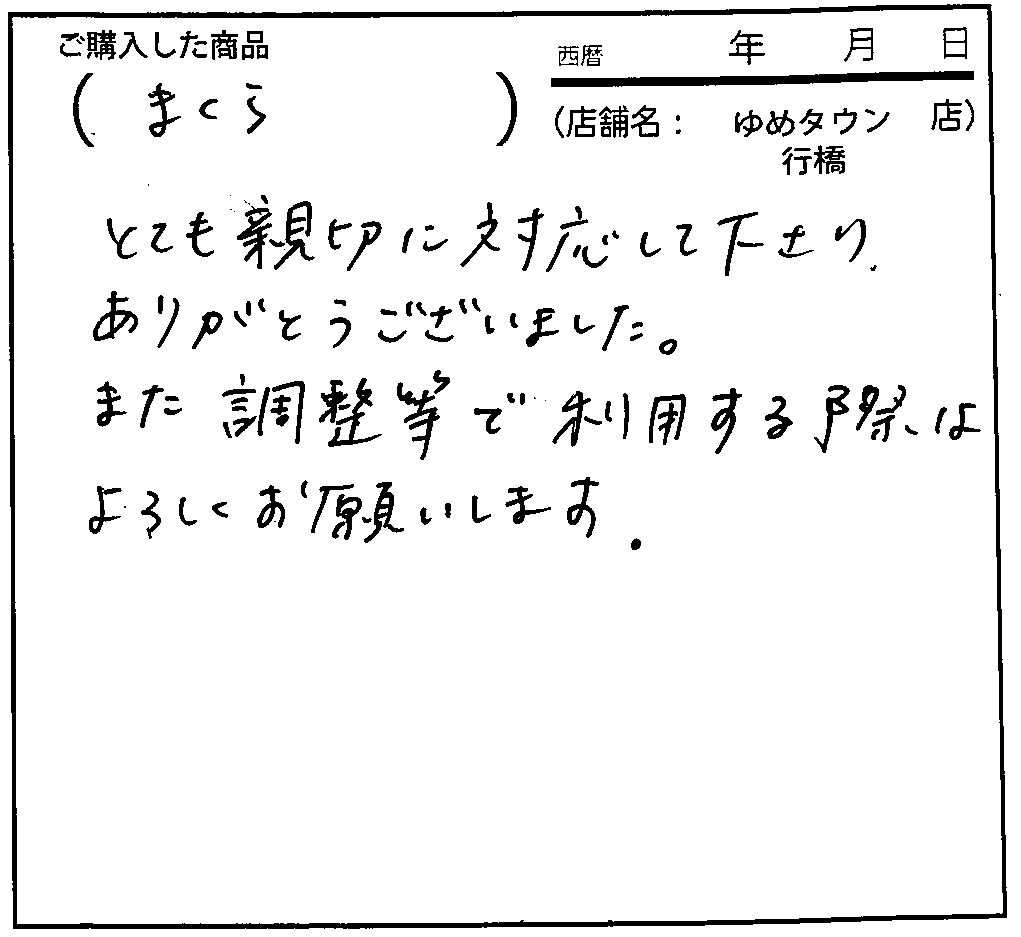 ご購入した商品
( まくら )
西暦 年 月 日
(店舗名: ゆめタウン 店)
行橋
とても親切に対応して下さり、
ありがとうございました。
また調整等で利用する際は
よろしくお願いします.